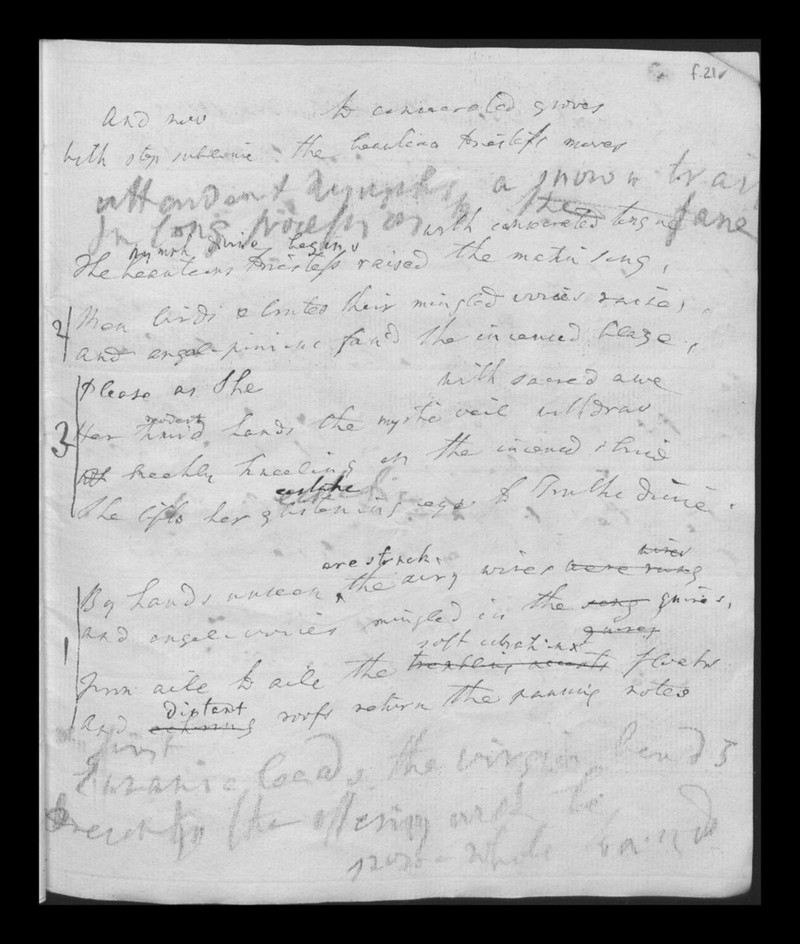 f.21v
And now to consecrated groves
With step sublime the beauteous Priestess moves
attendant Nymphs, a snowy train
In long procession the fane
with consecrated tongue
nymph divine begins
The beauteous Priestess raised the matin song,
2 Then birds & brutes their mingled voices raise,
and angel-pinions fan'd the incensed blaze,
Please as She with sacred awe
modest
3 Her timid hands the mystic veil
meekly kneeling at the incensed shrine
She lifts her glistening eyes to Truths divine.
are struck,
wires
By hands unseen, the airy wires were rung
1 And angel-voices mingled in the song quires,
quires
soft vibrations
From aile to aile the trembling accents floats
distant
And echoing roofs return the running notes
first
Urania leads the virgin band 5
the offering with
whole